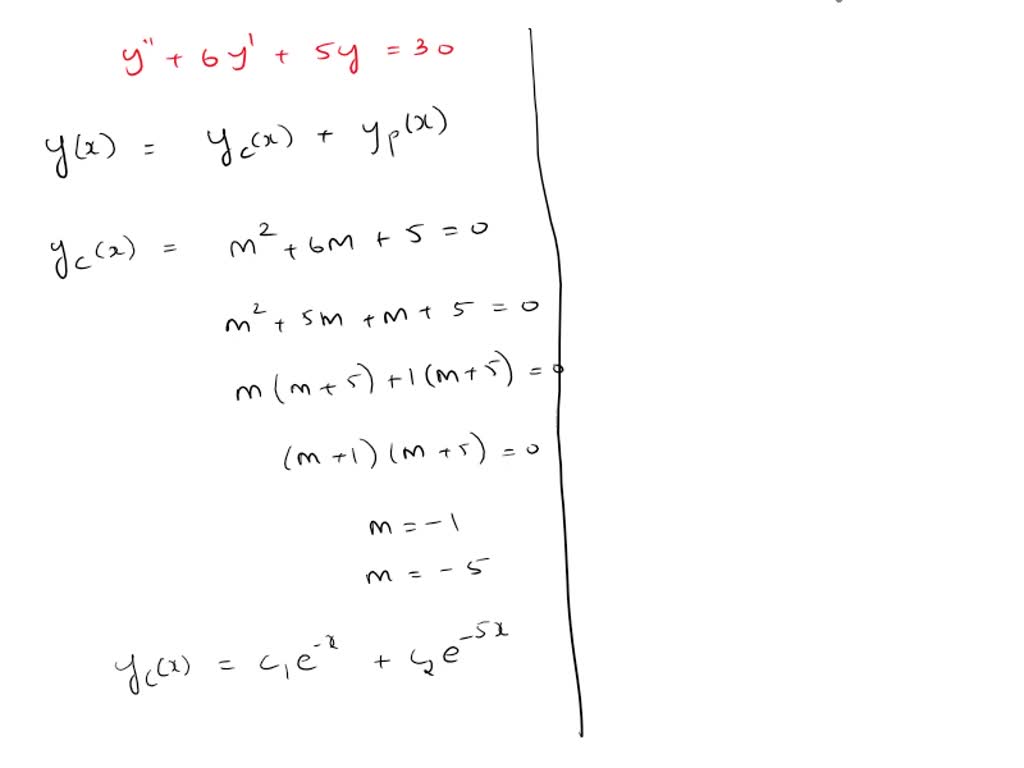 y'' + 6y' + 5y = 30
y(x) = y_c(x) + y_p(x)
y_c(x) = m² + 6m + 5 = 0
m² + 5m + m + 5 = 0
m(m+5) + 1(m+5) = 0
(m+1)(m+5) = 0
m = -1
m = -5
y_c(x) = c₁e^{-x} + c₂e^{-5x}